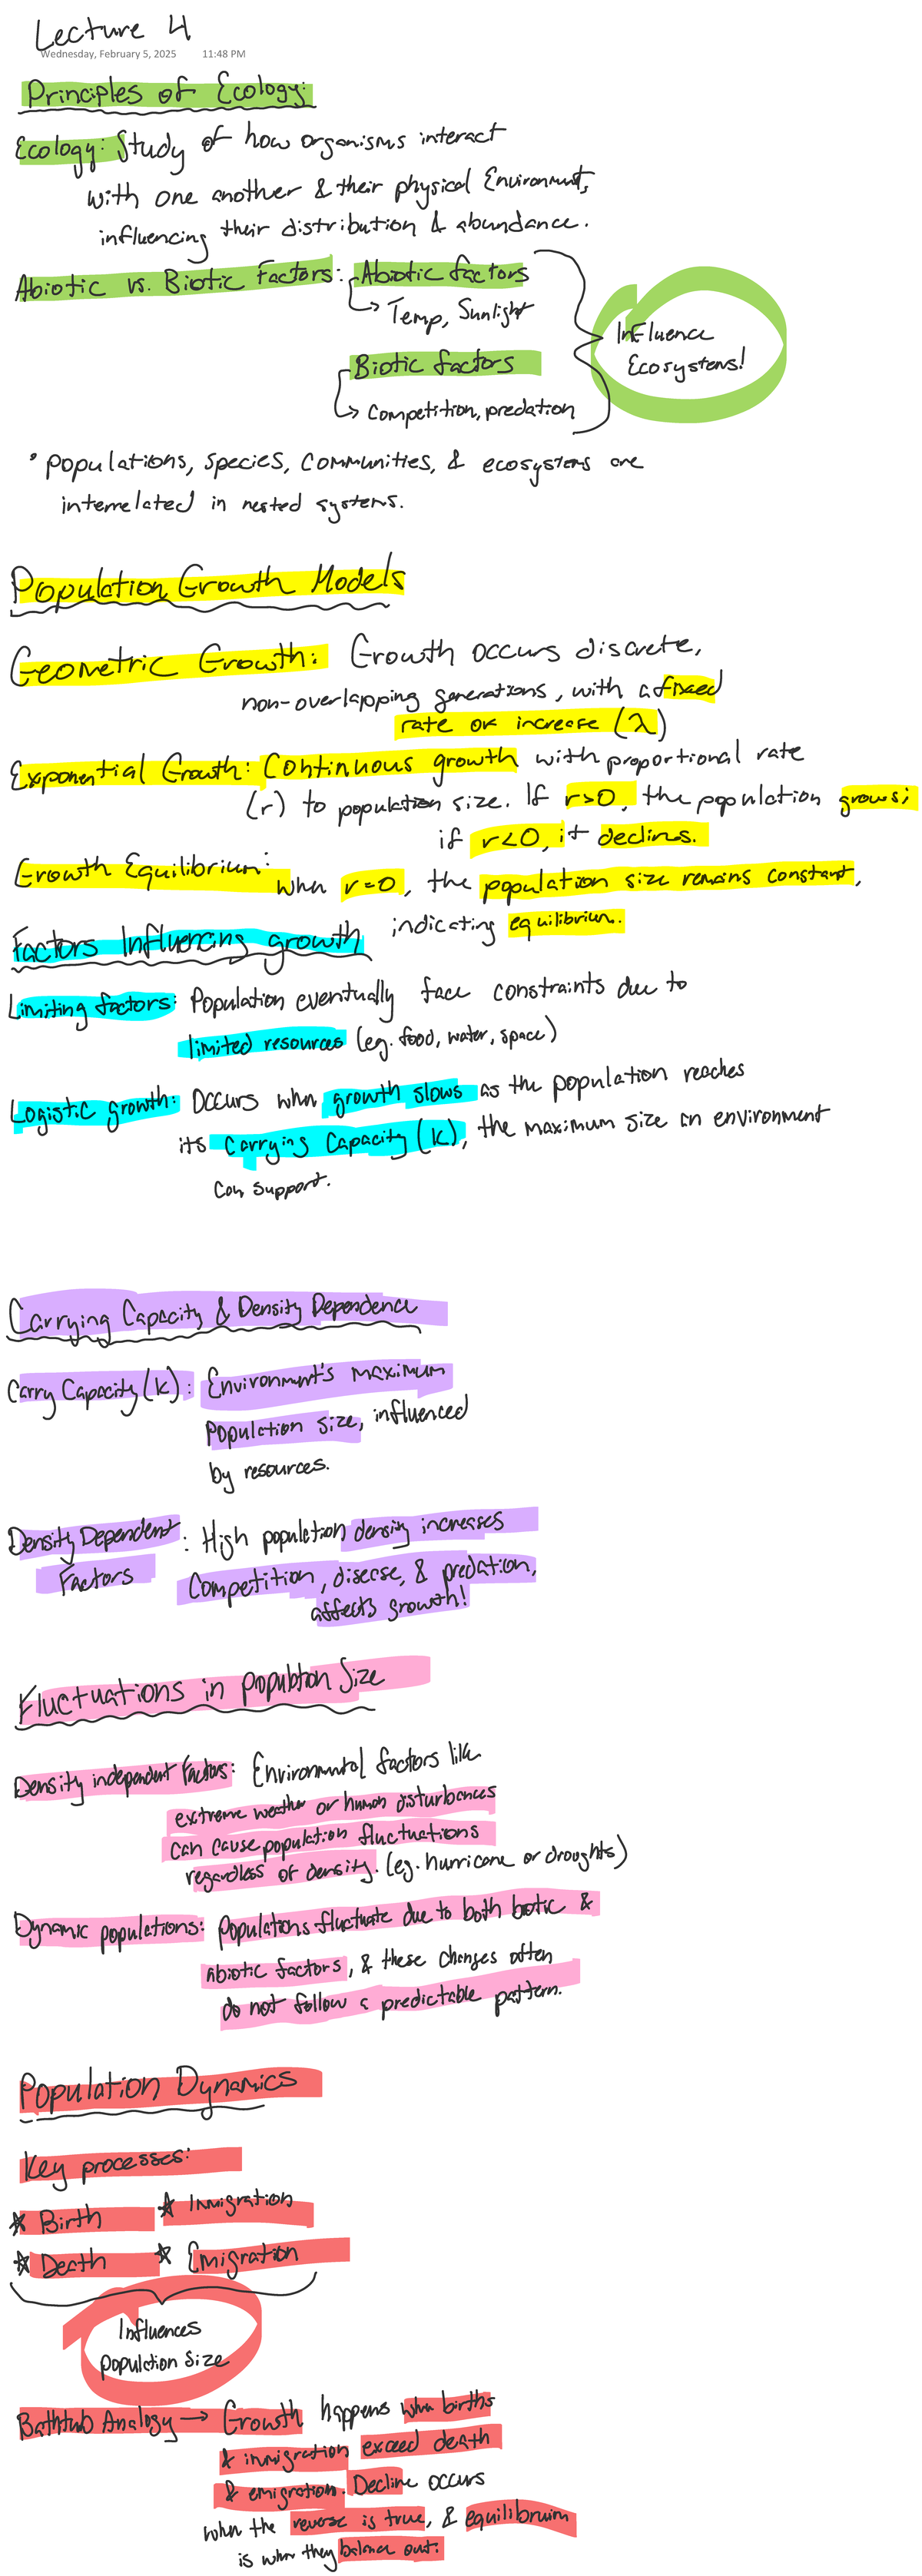 Lecture 4
Wednesday, February 5, 2025 11:48 PM
Principles of Ecology:
Ecology: Study of how organisms interact
with one another & their physical Environment,
influencing their distribution & abundance.
Abiotic vs. Biotic Factors: Abiotic factors
→ Temp, Sunlight
Influence
Ecosystems!
Biotic factors
→ Competition, predation
• populations, species, communities, & ecosystems are
interrelated in nested systems.
Population Growth Models
Geometric Growth: Growth occurs discrete,
non-overlapping generations, with a fixed
rate of increase (λ)
Exponential Growth: Continuous growth with proportional rate
(r) to population size. If r>0, the population grows;
if r<0, it declines.
Growth Equilibrium: when r=0, the population size remains constant,
indicating equilibrium.
Factors Influencing growth
Limiting factors: Population eventually face constraints due to
limited resources (eg. food, water, space)
Logistic growth: Occurs when growth slows as the population reaches
its carrying capacity (K), the maximum size an environment
can support.
Carrying Capacity & Density Dependence
Carry Capacity (K): Environment's maximum
Population size, influenced
by resources.
Density Dependent : High population density increases
Factors Competition, disease, & predation,
affects growth!
Fluctuations in Population Size
Density independent Factors: Environmental factors like
extreme weather or human disturbances
can cause population fluctuations
regardless of density. (eg. hurricane or droughts)
Dynamic populations: Populations fluctuate due to both botic &
abiotic factors, & these changes often
do not follow a predictable pattern.
Population Dynamics
Key processes:
* Birth * Immigration
* Death * Emigration
Influences
population size
Bathtub Analogy → Growth happens when births
& immigration exceed death
& emigration. Decline occurs
when the reverse is true, & equilibruim
is when they balance out.